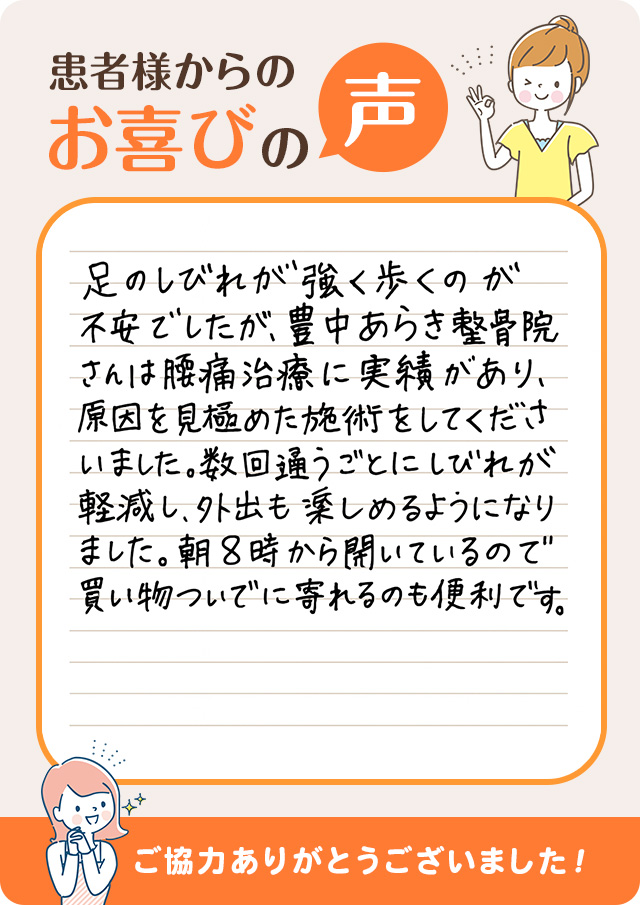 患者様からの
お喜びの声
足のしびれが強く歩くのが
不安でしたが、豊中あらき整骨院
さんは腰痛治療に実績があり、
原因を見極めた施術をしてくださ
いました。数回通うごとにしびれが
軽減し、外出も楽しめるようになり
ました。朝8時から開いているので
買い物ついでに寄れるのも便利です。
ご協力ありがとうございました！